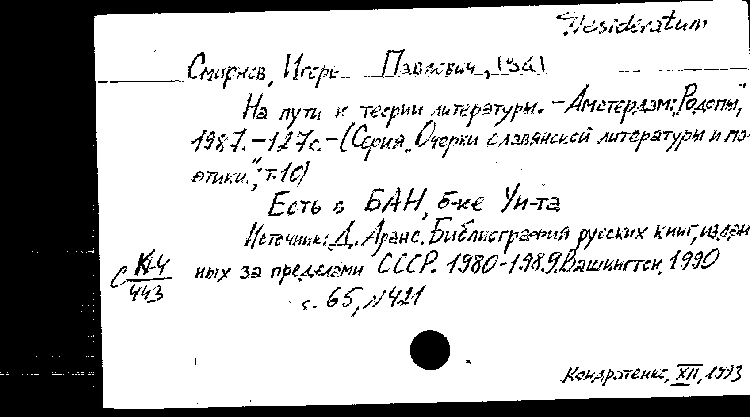 Desideratum
Смирнов, Игорь Павлович, 1941
На пути к теории литературы. – Амстердам: „Родопи“,
1987. – 127с. – (Серия „Очерки славянской литературы и по-
этики“; т.10)
Есть в БАН, б-ке Ун-та
Источник: Д. Аранс. Библиография русских книг, издан
ных за пределами СССР. 1980-1989. Вашингтон, 1990
с. 65, №421
С К-4
443
Кондратенко, XII, 1993